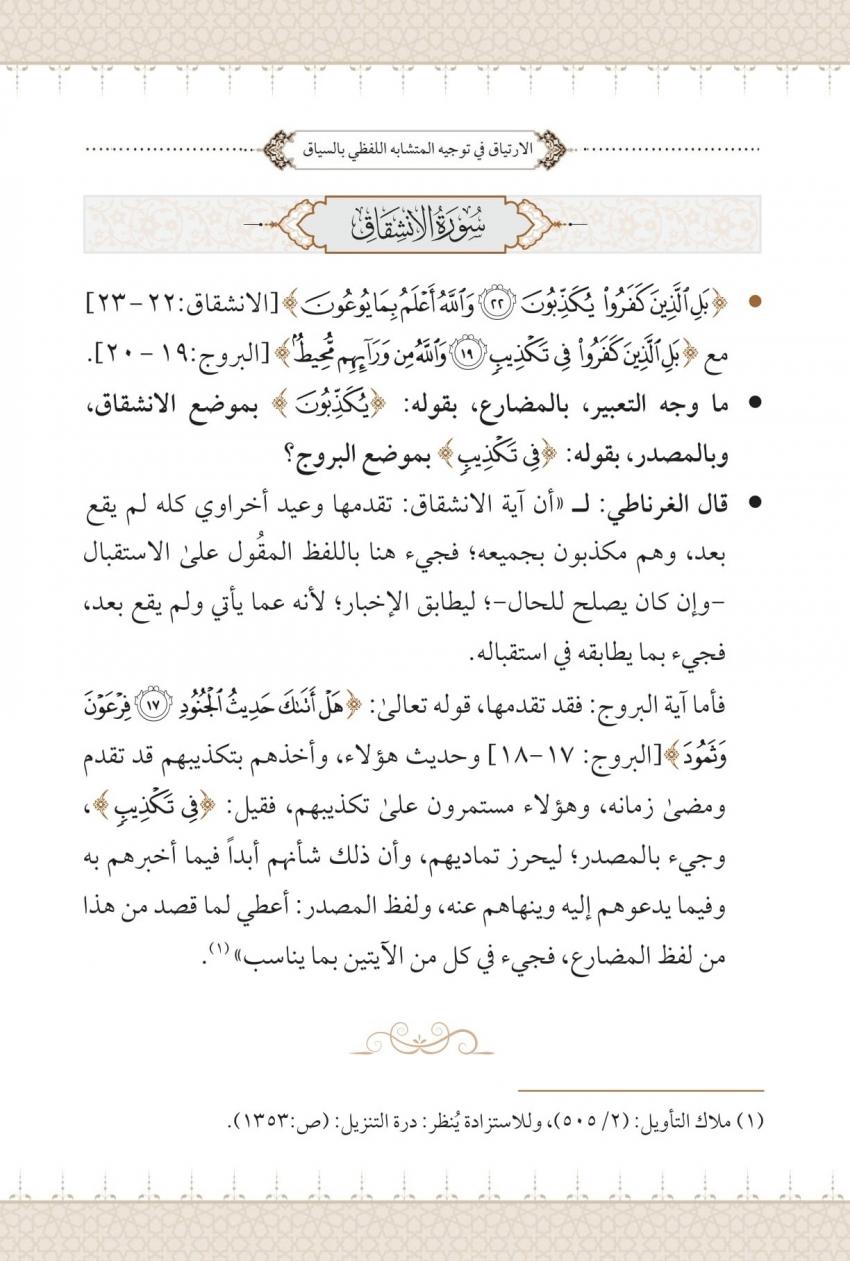 الارتياق في توجيه المتشابه اللفظي بالسياق
سُورَةُ الانشِقَاق
• ﴿بَلِ ٱلَّذِينَ كَفَرُوا۟ يُكَذِّبُونَ ٢٢ وَٱللَّهُ أَعْلَمُ بِمَا يُوعُونَ﴾ [الانشقاق:٢٢ – ٢٣]
مع ﴿بَلِ ٱلَّذِينَ كَفَرُوا۟ فِى تَكْذِيبٍ ١٩ وَٱللَّهُ مِن وَرَآئِهِم مُّحِيطٌۢ﴾ [البروج:١٩ – ٢٠].
• ما وجه التعبير، بالمضارع، بقوله: ﴿يُكَذِّبُونَ﴾ بموضع الانشقاق،
وبالمصدر، بقوله: ﴿فِى تَكْذِيبٍ﴾ بموضع البروج؟
• قال الغرناطي: لـ «أن آية الانشقاق: تقدمها وعيد أخراوي كله لم يقع
بعد، وهم مكذبون بجميعه؛ فجيء هنا باللفظ المقُول علىٰ الاستقبال
–وإن كان يصلح للحال–؛ ليطابق الإخبار؛ لأنه عما يأتي ولم يقع بعد،
فجيء بما يطابقه في استقباله.
فأما آية البروج: فقد تقدمها، قوله تعالىٰ: ﴿هَلْ أَتَىٰكَ حَدِيثُ ٱلْجُنُودِ ١٧ فِرْعَوْنَ
وَثَمُودَ﴾ [البروج: ١٧–١٨] وحديث هؤلاء، وأخذهم بتكذيبهم قد تقدم
ومضىٰ زمانه، وهؤلاء مستمرون علىٰ تكذيبهم، فقيل: ﴿فِى تَكْذِيبٍ﴾،
وجيء بالمصدر؛ ليحرز تماديهم، وأن ذلك شأنهم أبداً فيما أخبرهم به
وفيما يدعوهم إليه وينهاهم عنه، ولفظ المصدر: أعطي لما قصد من هذا
من لفظ المضارع، فجيء في كل من الآيتين بما يناسب»(١).
(١) ملاك التأويل: (٢/ ٥٠٥)، وللاستزادة يُنظر: درة التنزيل: (ص:١٣٥٣).